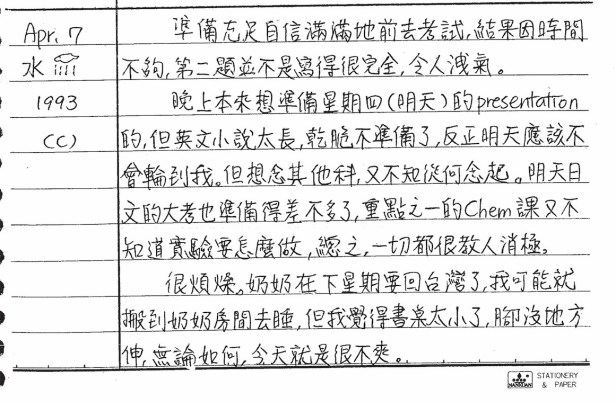 Apr. 7
水
1993
(C)
準備充足自信滿滿地前去考試,結果因時間
不夠,第二題並不是寫得很完全,令人洩氣。
晚上本來想準備星期四(明天)的presentation
的,但英文小說太長,乾脆不準備了,反正明天應該不
會輪到我。但想念其他科,又不知從何念起。明天日
文的大考也準備得差不多了,重點之一的Chem課又不
知道實驗要怎麼做,總之,一切都很教人消極。
很煩燥。奶奶在下星期要回台灣了,我可能就
搬到奶奶房間去睡,但我覺得書桌太小了,腳沒地方
伸,無論如何,今天就是很不爽。
NANKUAN
STATIONERY
& PAPER